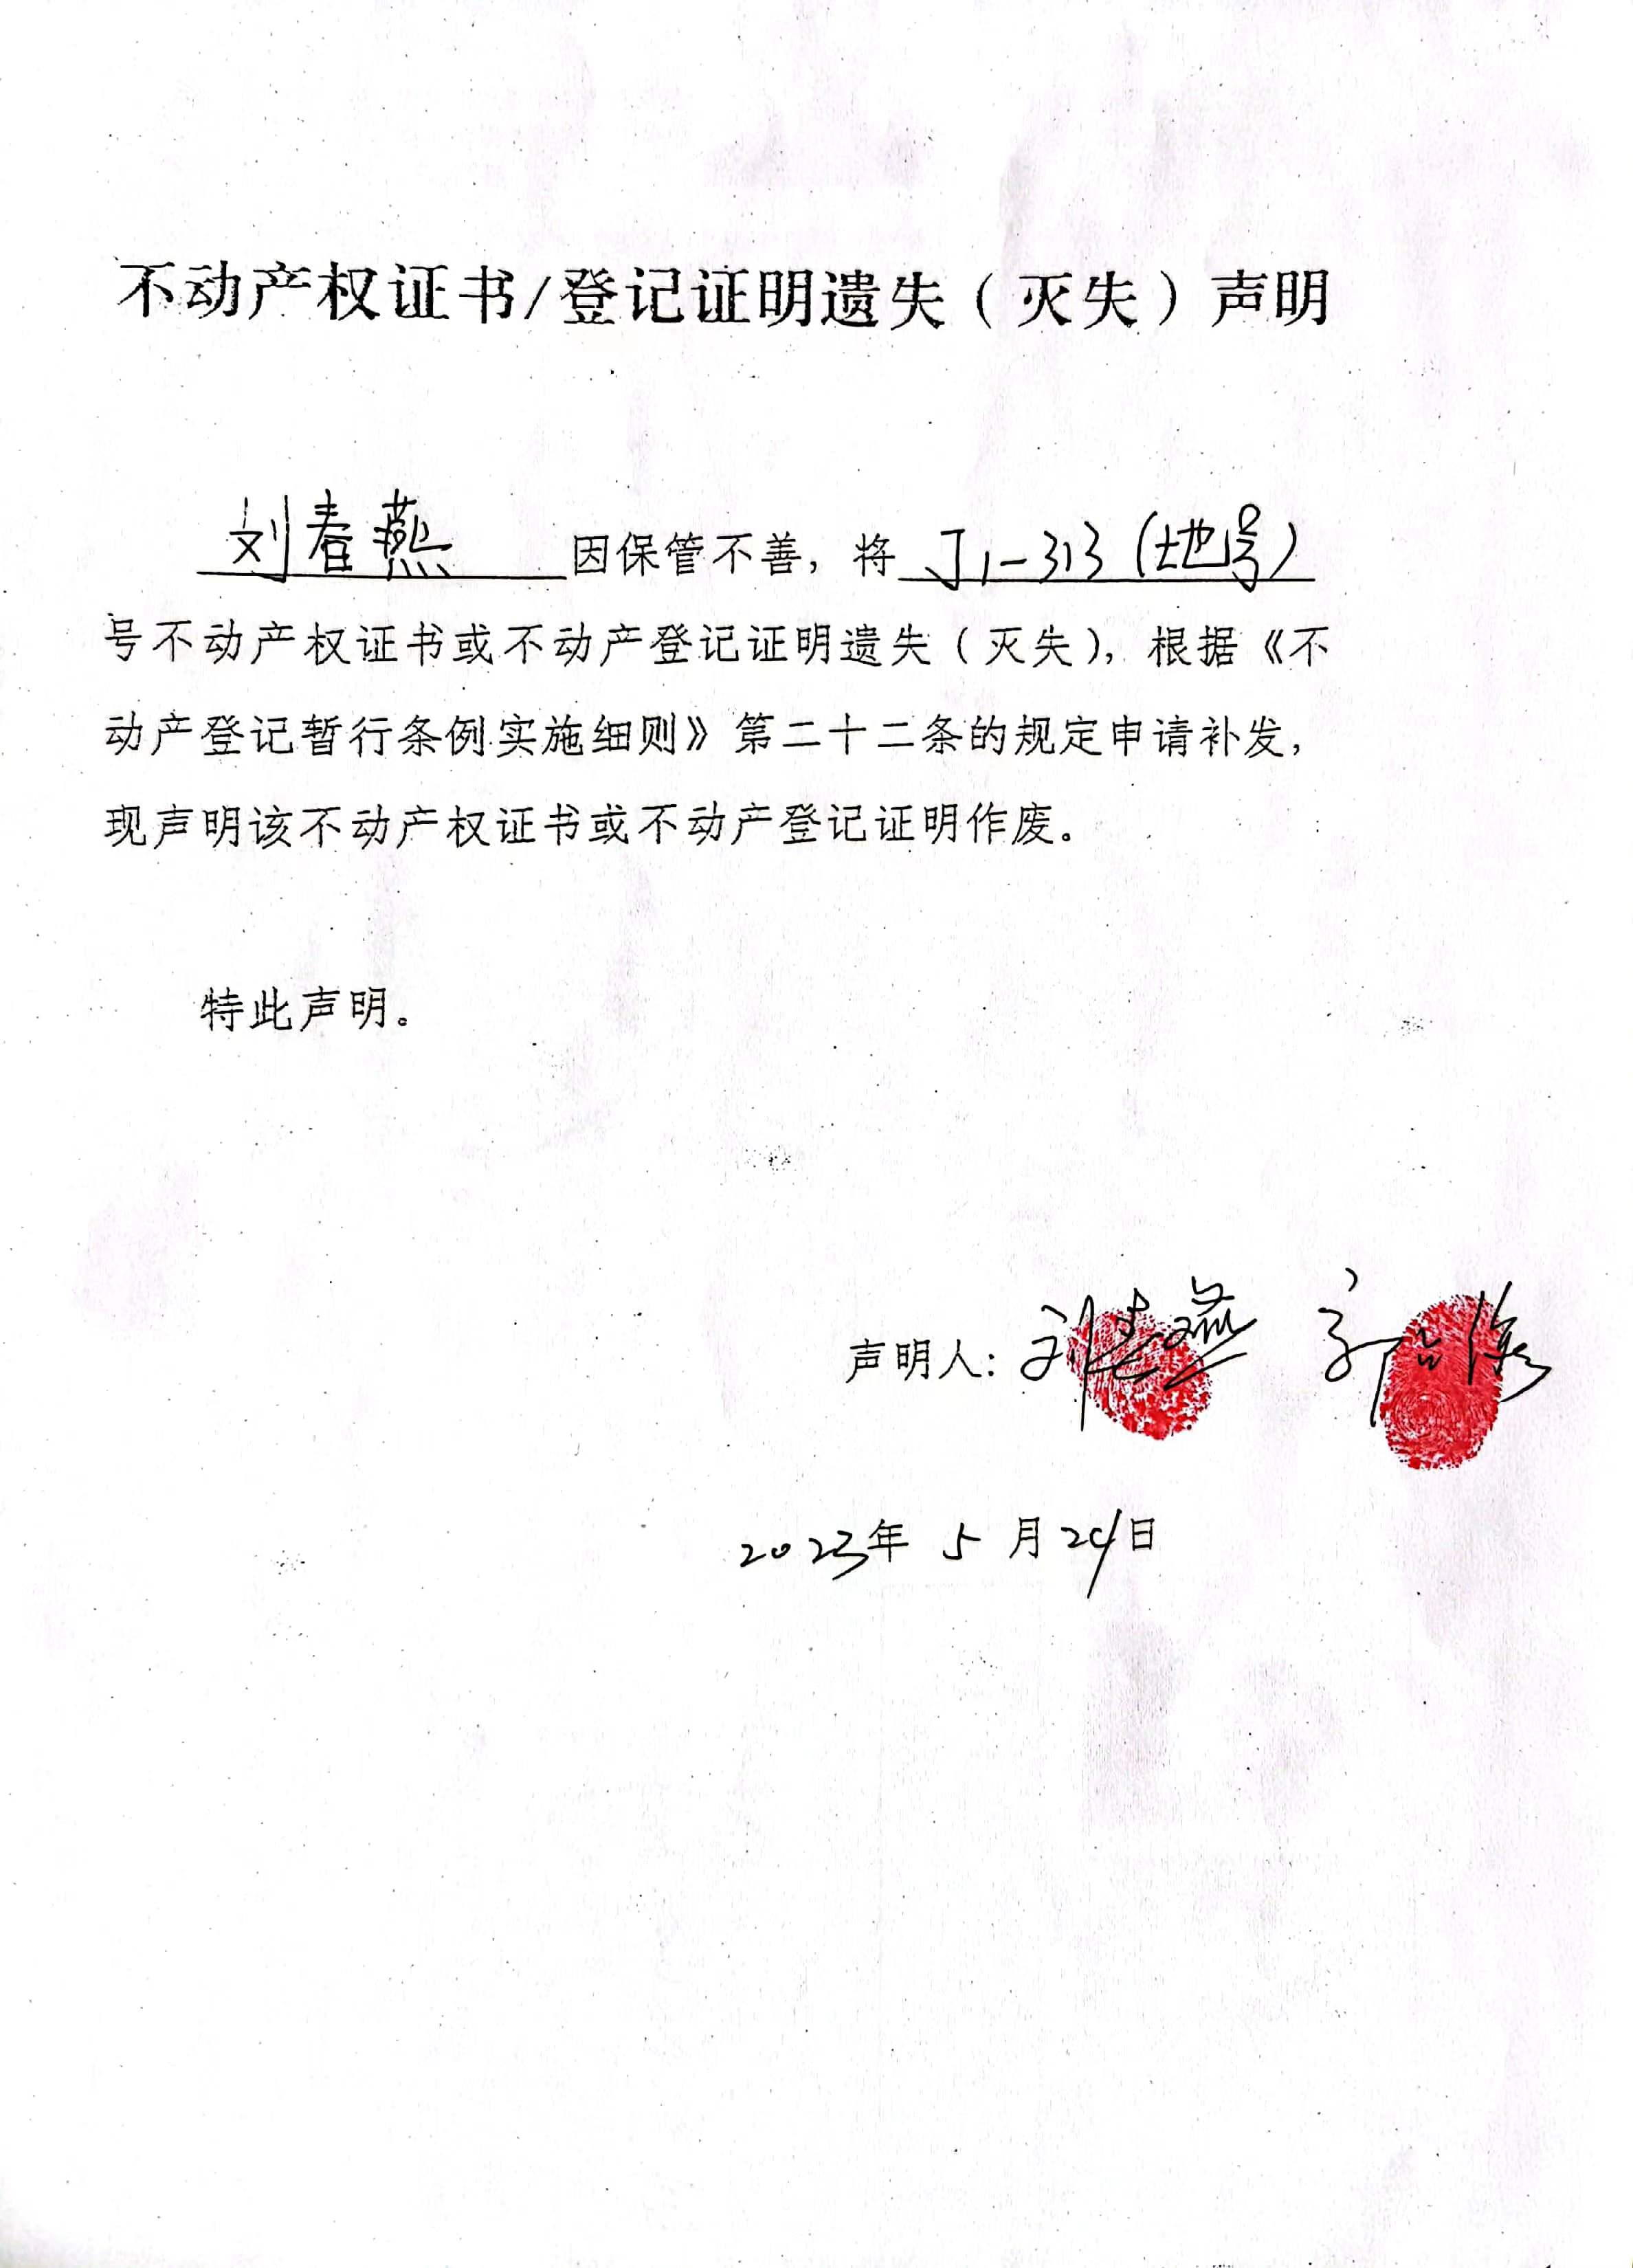 不动产权证书/登记证明遗失（灭失）声明
刘春燕 因保管不善，将 J1-313（地号）
号不动产权证书或不动产登记证明遗失（灭失），根据《不
动产登记暂行条例实施细则》第二十二条的规定申请补发，
现声明该不动产权证书或不动产登记证明作废。
特此声明。
声明人：刘春燕
2023年 5 月24日